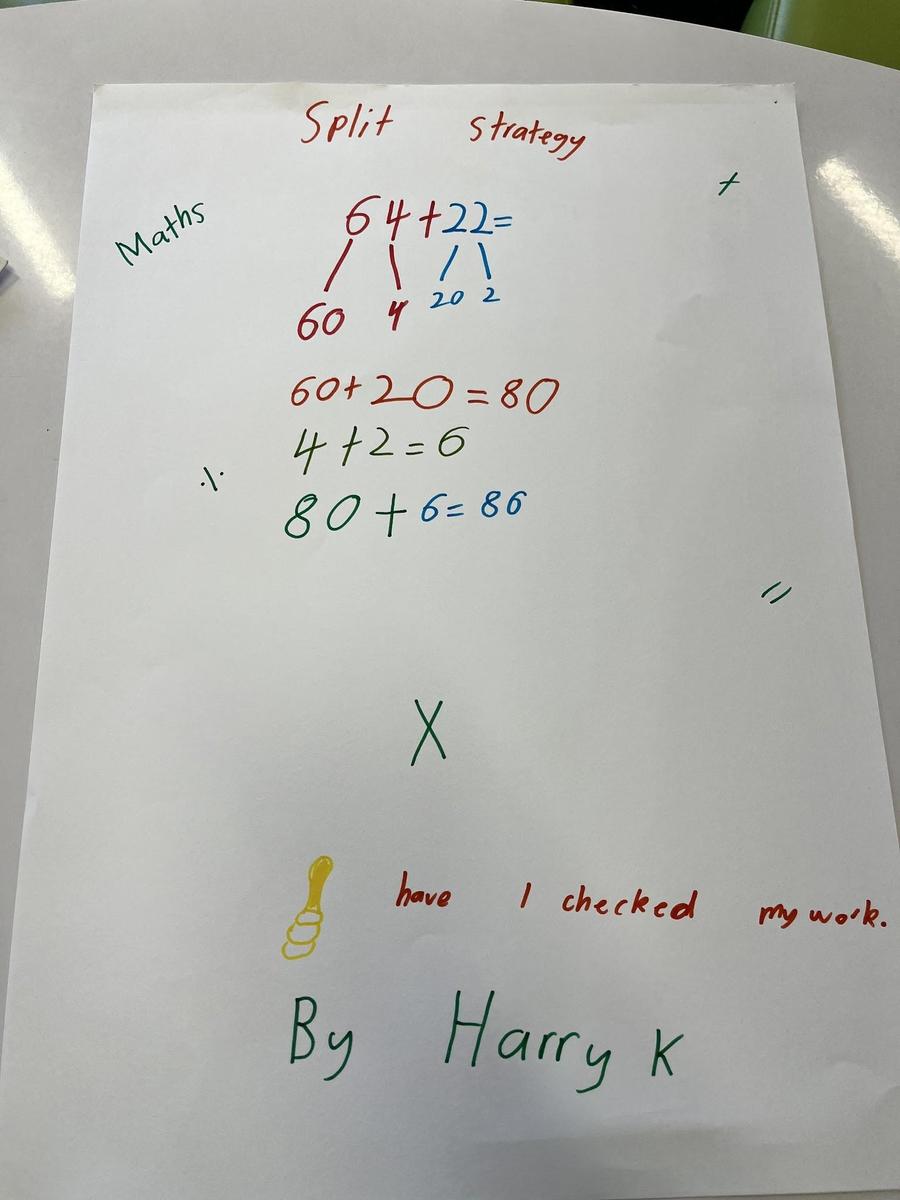 Split strategy
+
Maths
64+22=
60 4 20 2
60+20=80
4+2=6
÷
80+6=86
=
X
have I checked my work.
By Harry K